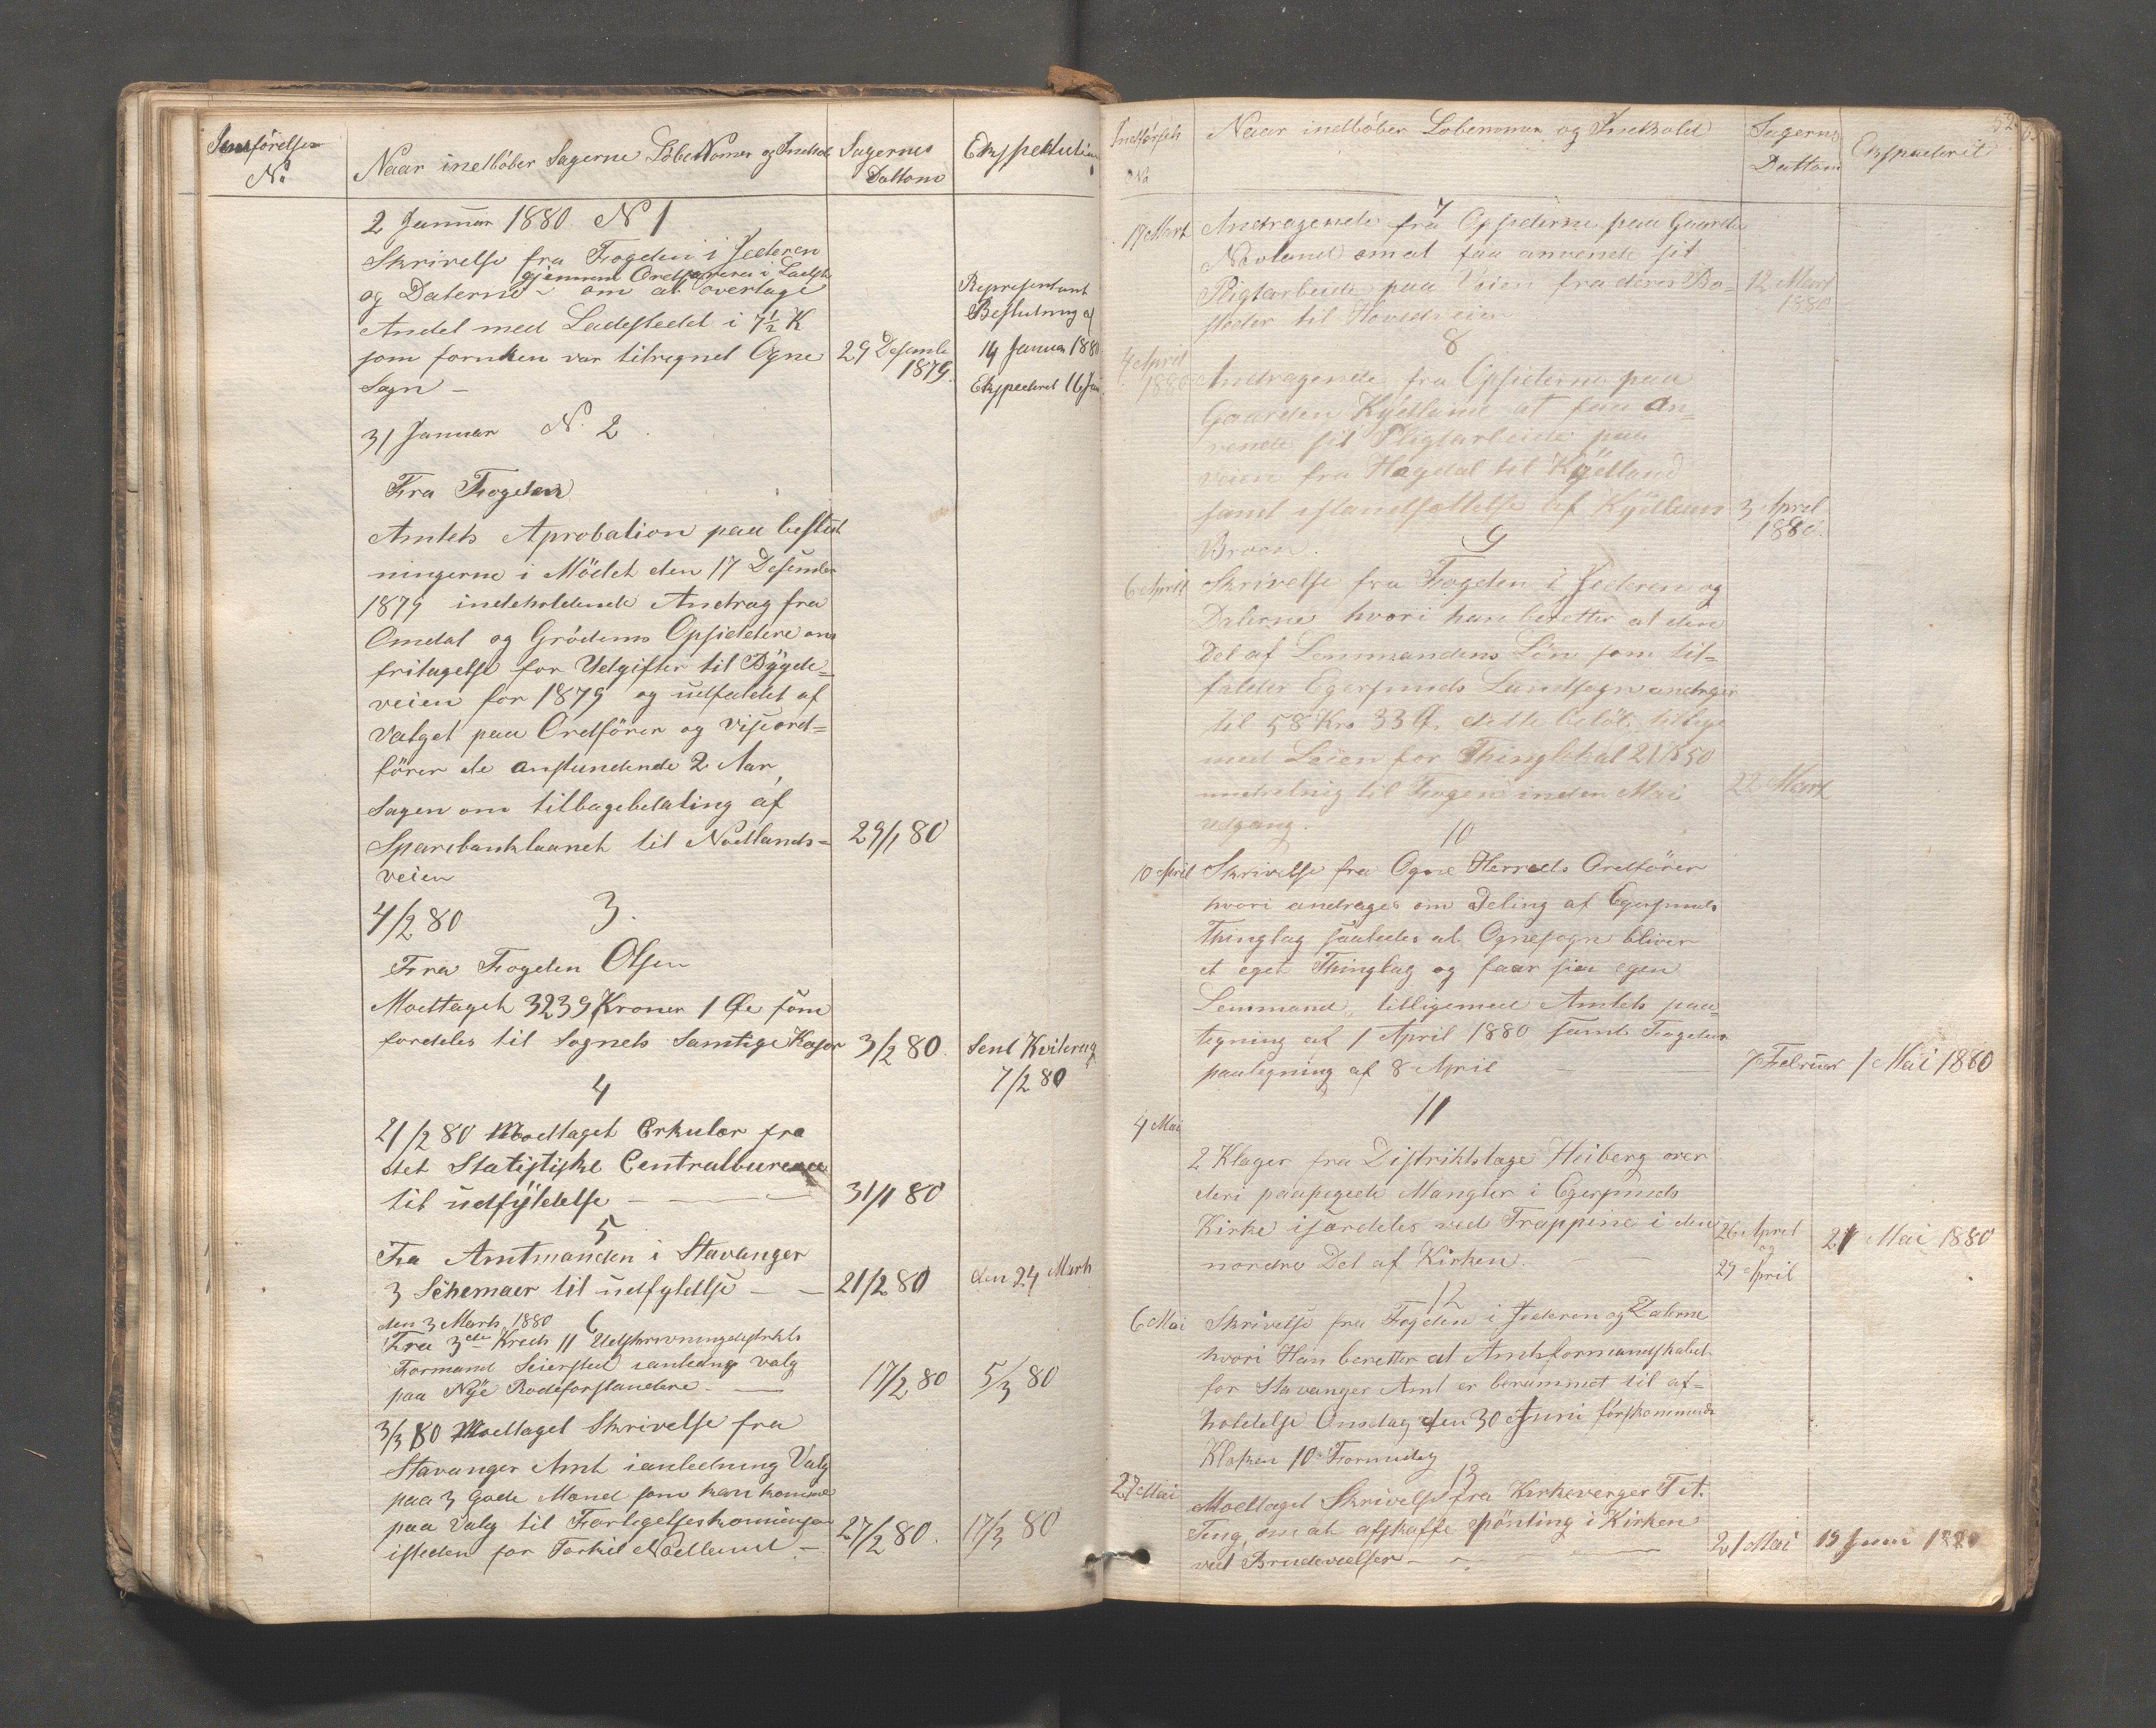 N:
Naar indlöber Sagerne Löbe Nomer og Indhold
Sagernes
Dattom
Ekspeditution
2 Januar 1880 N 1
Skrivelse fra Fogden i Jederen
gjennem Ordföreren i Ladst
og Dalerne om at overtage
Andel med Ladestedet i 7½ K
som foruden var tilregnet Ogne
Sogn –
29 Desember
1879.
Representant
Beslutning af
14 Januar 1880
Ekspederet 16 Jan
31 Januar N. 2.
Fra Fogden
Amtets Aprobation paa beslut
ningerne i Mödet den 17 Desember
1879 indeholdende Andrag fra
Omdal og Grödems Opsiddere om
fritagelse for Udgifter til Bÿgde=
veien for 1879 og udfaldet af
Valget paa Ordförer og viseord=
förer de anstundende 2 Aar,
Sagen om tilbagebetaling af
Sparebanklaanet til Nodlands=
veien
29/1 80
4/2 80 3.
Fra Fogden Olsen
Modtaget 3239 Kroner 1 Øre som
fordeles til Sognets Samtige Kasser
3/2 80.
Sent Kvitering
7/2 80
4
21/2 80 Modtaget Cirkulær fra
det Statistiske Centralbureau
til udfÿldelse –
31/1 80
5
Fra Amtmanden i Stavanger
3 Schemaer til udfyldelse – –
21/2 80
den 24 Marts
den 3 Marts 1880 6
Fra 3die Kreds 11 Udskrivningsdistrikts
Formand Seiersted ianledning valg
paa Nÿe Rodeforstandere –
17/2 80
5/3 80
3/3 80 Modtaget Skrivelse fra
Stavanger Amt ianledning Valg
paa 3 Gode Mænd som kan komme
paa Valg til Forligelseskomissær
isteden for Torkil Nodland –
27/2 80.
17/3 80
52
Naar indlöber Löbenomer og Indhold
Sagernes
Dattom
Ekspederet
7
19 Mart Andragende fra Opsiderne paa Gaarden
Novland om at faa anvende sit
Pligtarbeide paa Veien fra deres Bo=
steder til Hovedveien
12 Mart
1880
8
4 April
1880 Andragende fra Opsiderne paa
Gaarden Kÿdland at faa an=
vende sit Pligtarbeide paa
veien fra Hægdal til Kÿdland
samt istandsettelse af Kÿdlans
Broen.
3 April
1880.
9
6 April Skrivelse fra Fogden i Jederen og
Dalerne hvori han beretter at den
Del af Lensmandens Lön som til=
falder Egersunds Landsogn andrager
til 58 Kro 33 Ø. dette belöb tillige
med Leien for Thinglokal 21 K 50
udgang.
22 Mart
10
10 April Skrivelse fra Ogne Herreds Ordförer
hvori andrages om Deling af Egersunds
Thinglag saaledes at Ognesogn bliver
et eget Thinglag og faar sin egen
Lensmand, tilligemed Amtets paa=
tegning af 1 April 1880 samt Fogdens
paategning af 8 April –
7 Februar
1 Mai 1880
11
4 Mai
2 Klager fra Distriktslæge Heiberg over
deri paapegede Mangler i Egersunds
Kirke isærdeles ved Trappene i den
nordre Del af Kirken. –
26 April
og
29 April
21 Mai 1880
12
6 Mai Skrivelse fra Fogden i Jederen og Dalerne
hvori Han beretter at Amtsformandskabet
for Stavanger Amt er berammet til af=
holdelse Onsdag den 30 Juni förstkommende
Klokken 10 Formidag
13
27 Mai Modtaget Skrivelse fra Kirkeverger Tit.
Teng, om at afskaffe Pönting i Kirken
ved Brudevielser – –
21 Mai
15 Juni 1880